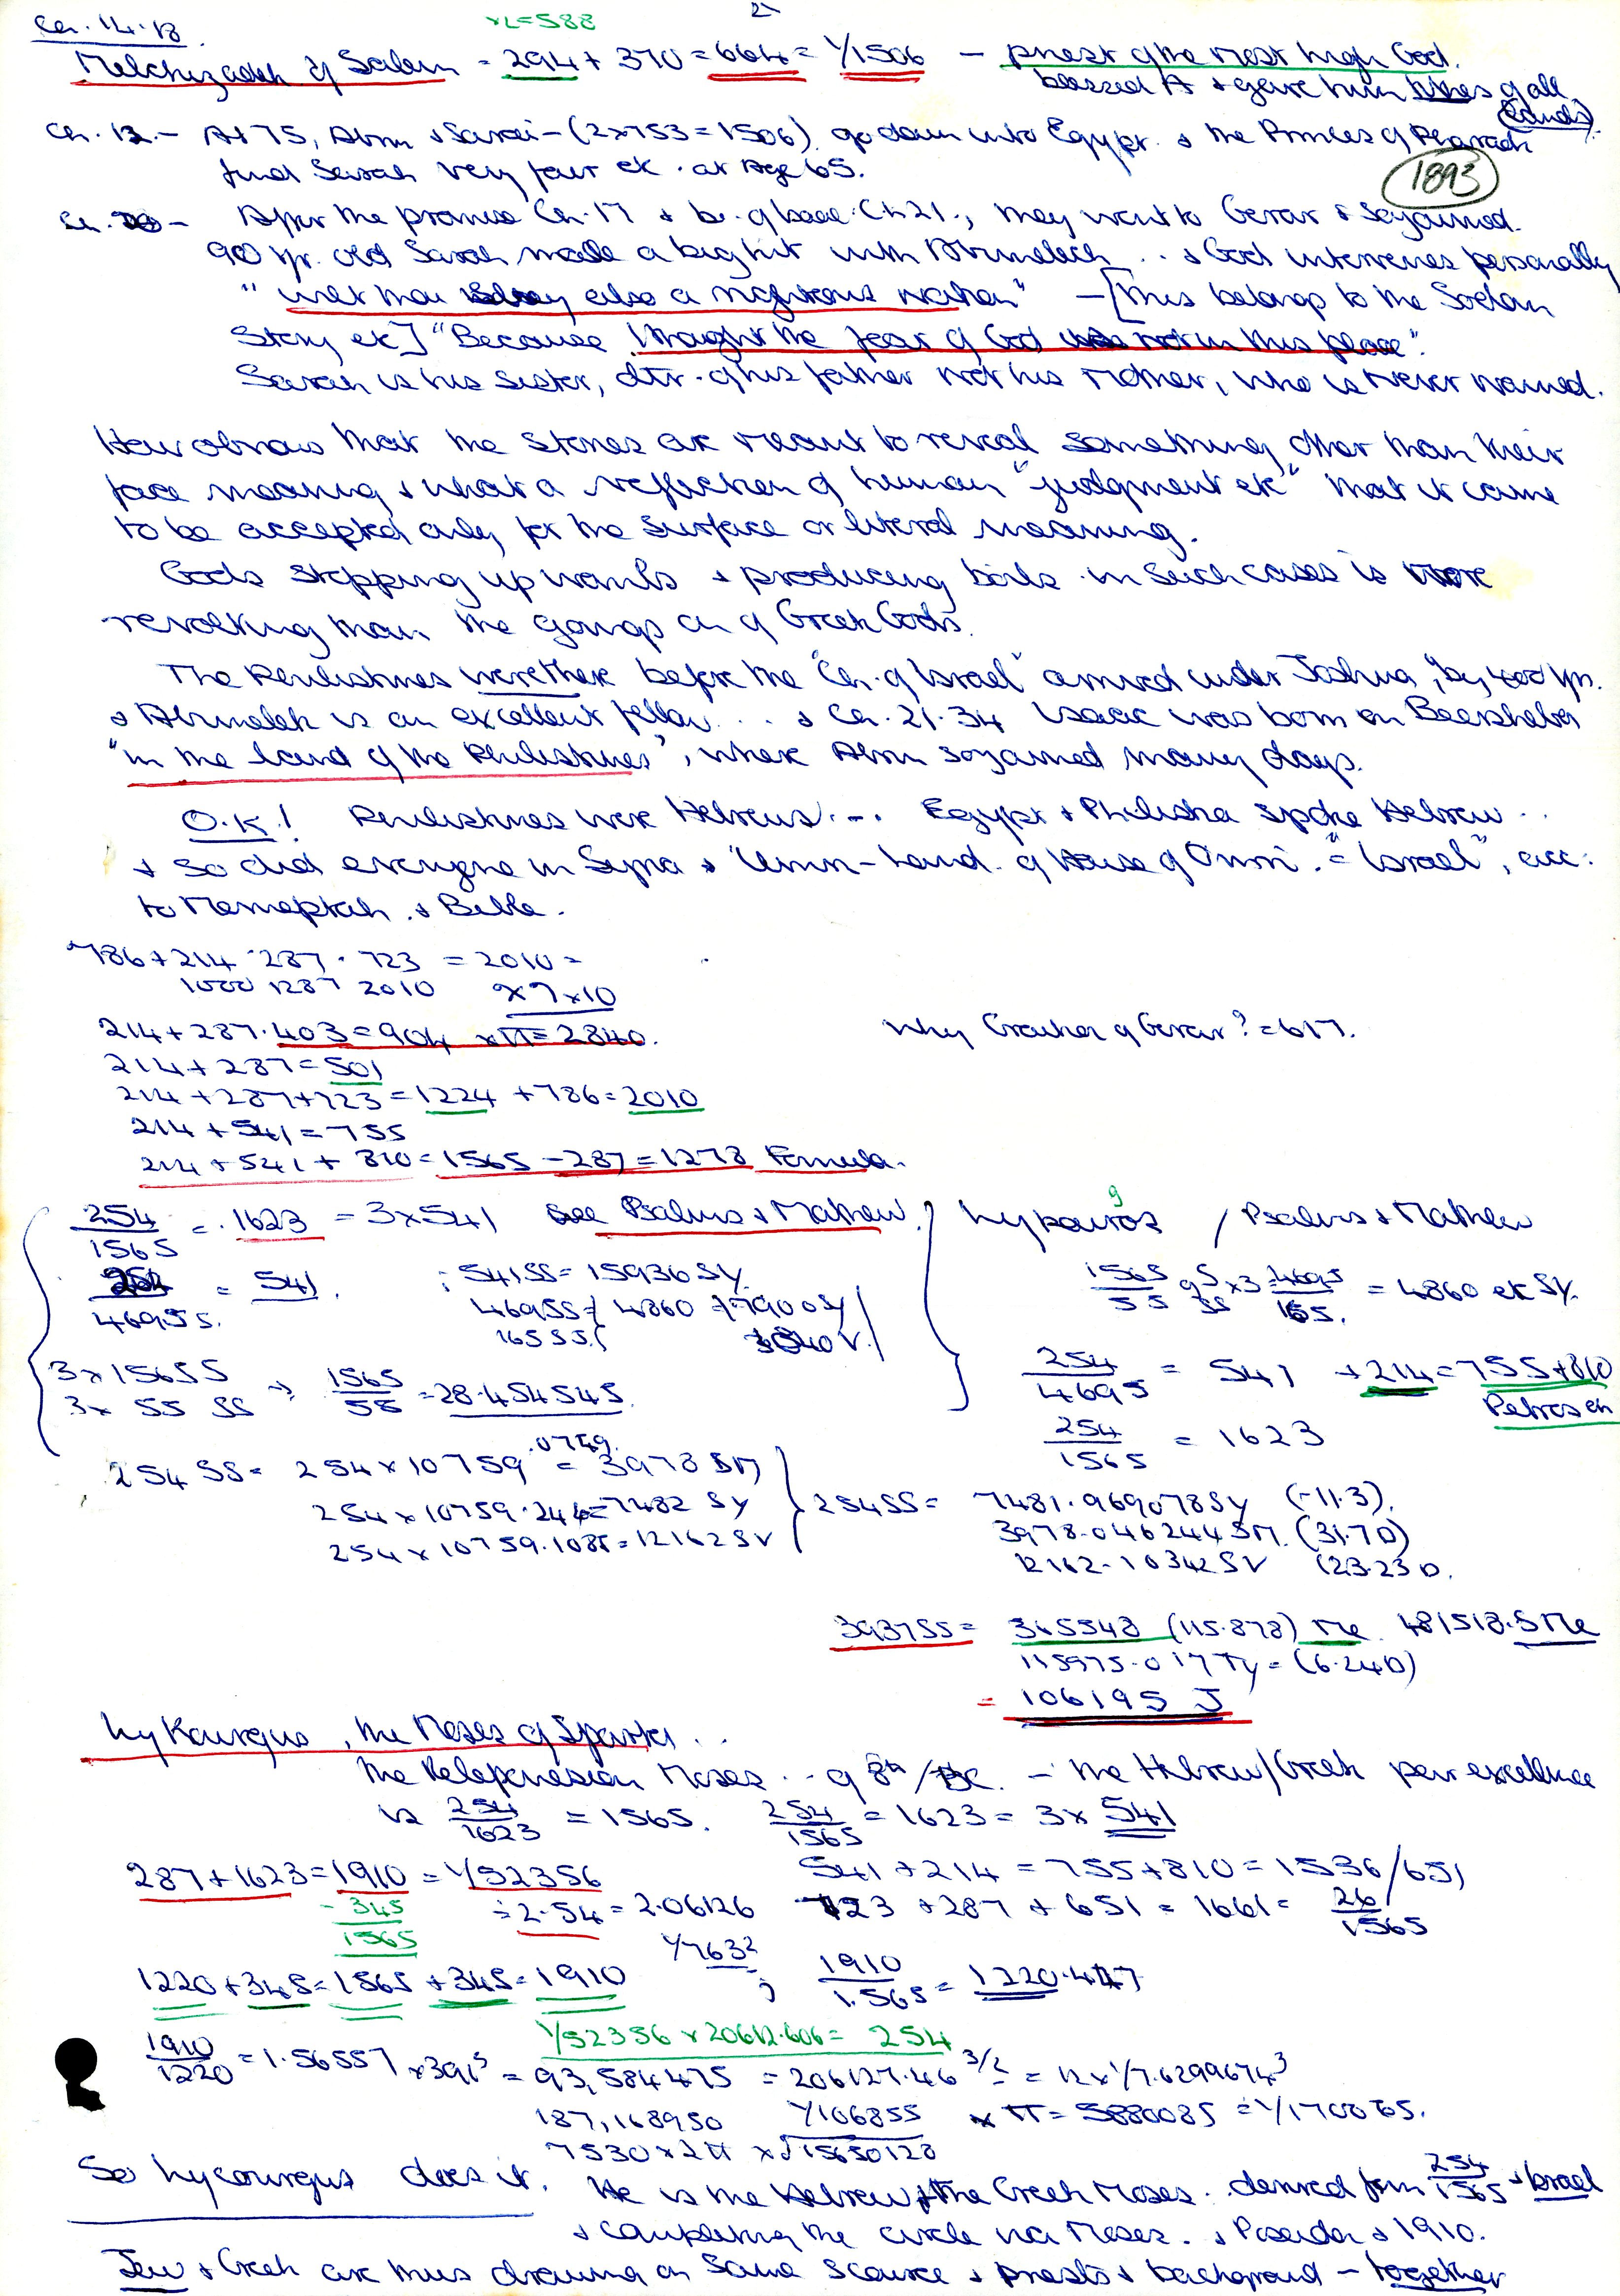 Ch. 14.18
x2=588
2
Melchizadek of Salem = 294 + 370 = 664 = 1/1506 – priest of the Most high God.
blessed A + gave him tithes of all
(Lands)
Ch. 12. – At 75, Abm + Sarai – (2x753=1506) go down into Egypt. + the Princes of Pharaoh
find Sarah very fair etc. at Age 65.
1893
Ch. 20 – After the promise Ch. 17 + be. of Isaac Ch 21., they went to Gerar + sojourned.
90 yr. old Sarah made a big hit with Abimelech .. + God intervenes personally
"wilt thou slay also a righteous nation" – [this belongs to the Sodom
Story etc] "Because I thought the fear of God was not in this place".
Sarah is his sister, dtr. of his father not his Mother, who is never named.
How obvious that the stories are meant to reveal something other than their
face meaning + what a reflection of human "judgment etc" that it came
to be accepted only for the surface or literal meaning.
Gods stopping up wombs + producing boils in such cases is more
revolting than the goings on of Greek Gods.
The Philistines were there before the "Ch. of Israel" arrived under Joshua, by 400 yrs.
+ Abimelek is an excellent fellow ... + Ch. 21.34 Isaac was born in Beersheba
"in the land of the Philistines", where Abm sojourned many days.
O.K.! Philistines were Hebrews ... Egypt + Philistia spoke Hebrew ..
+ so did everyone in Syria + "Umm-Land. of House of Omri. = Israel", acc:
to Merneptah. + Bible.
786+214 . 287 . 723 = 2010 =
1000 1287 2010 x7x10
214+287.403=904 xπ=2840.
Why Gracher of Gerar? = 617.
214+287=501
214+287+723=1224 +786=2010
214+541=755
214+541+810=1565 –287=1278 Formula.
254/1565 = .1623 = 3x541 See Psalms + Mathew.
254/4695S. = 541. ; 541SS=15936SY.
469SS
165SS
3x156SS
3x 55 SS → 1565/55 = 28.454545
9
Lykouros / Psalms + Mathew
= 4860 etc SY.
254/4695 = 541 +214=755+810
Petros etc
254/1565 = 1623
254 SS = 254x10759 = 3978 SM
254x10759.244=7482 SY
254x10759.108π=12162SV
254SS = 7481.969078SY (-11.3).
3978.046244SM. (31.7D)
12162.10342SV (23.23D.
3937SS = 365548 (115.878) Me. 481518.5Me
115975.017Ty = (6.24D)
= 106195 J
Lykourgus, the Moses of Sparta..
The Peloponesian Moses .. of 8th/BC. – the Hebrew/Greek par excellence
is 254/1623 = 1565. 254/1565 = 1623 = 3x541
287+1623=1910=1/52356
541+214=755+810=1536/651
-345
1565
÷2.54=2.06126
723+287+651=1661= 26/1565
1/7632
1220+345=1565+345=1910
; 1910/1.565 = 1220.447
1/52356x20612.606=254
1910/1220=1.56557 x391⁵ = 93,584475 = 206127.46 3/2 = 12x1/7.6299674³
187,168950 1/106855 xπ=5880085=1/170065.
7530x2π x√15650128
So Lycourgus does it. He is the Hebrew + the Greek Moses. derived from 254/1565 + Israel
+ completing the circle via Moses. + Poseidon + 1910.
Jew + Greek are thus drawing on same source + priests + background – together